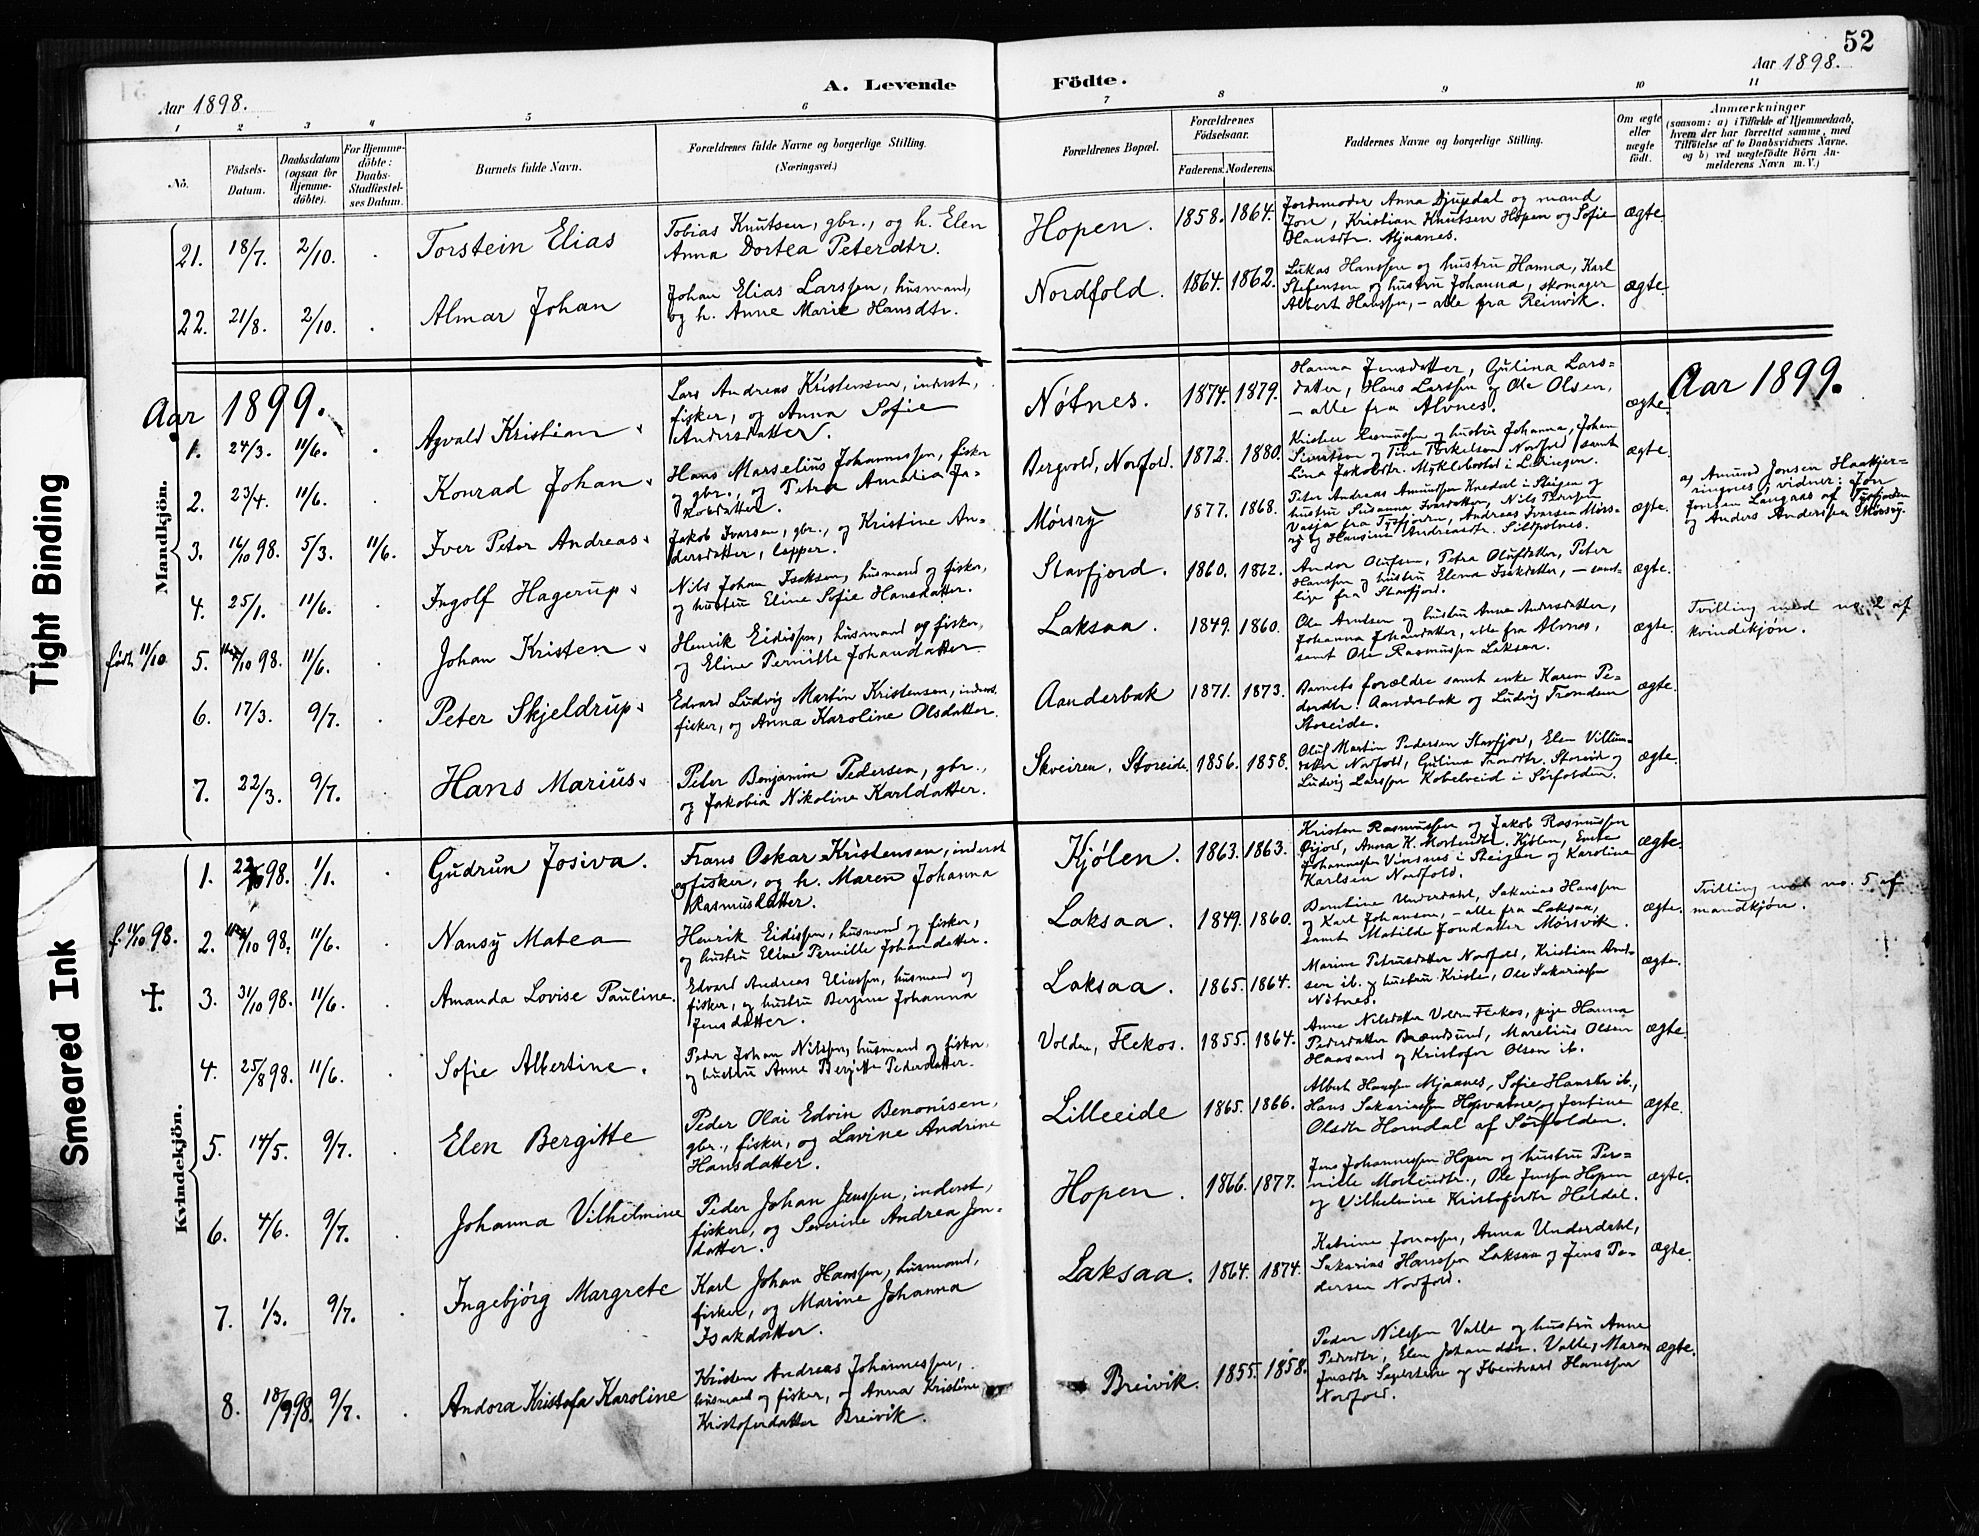 52
Aar 1898.
A. Levende
Födte.
Aar 1898.
1 2 3 4 5 6 7 8 9 10 11
No.
Födsels-
Datum.
Daabsdatum
(ogsaa for
Hjemme-
döbte).
For Hjemme-
döbte:
Daabs-
Stadfæstel-
ses Datum.
Barnets fulde Navn.
Forældrenes fulde Navne og borgerlige Stilling.
(Næringsvei.)
Forældrenes Bopæl.
Forældrenes
Födselsaar.
Faderens. Moderens.
Faddernes Navne og borgerlige Stilling.
Om ægte
eller
uægte
födt.
Anmærkninger
(saasom: a) i Tilfælde af Hjemmedaab,
hvem der har forrettet samme, med
Tilføielse af to Daabsvidners Navne,
og b) ved uægtefödte Börn An-
melderens Navn m. V.)
21. 18/7. 2/10. Torstein Elias
Tobias Knutsen, gbr., og h. Elen
Anna Dortea Petersdtr.
Hopen. 1858. 1864.
Jordmoder Anna Djupdal og mand
Jon, Kristian Knutsen Hopen og Sofie
Hansdtr. Mjaanes.
ægte.
22. 21/8. 2/10. Almar Johan
Johan Elias Larssen, husmand,
og h. Anne Marie Hansdtr.
Nordfold. 1864. 1862.
Lukas Hanssen og hustru Hanna, Karl
Stefensen og hustru Johanna, skomager
Albert Hanssen, – alle fra Reinvik.
ægte.
Aar 1899.
Aar 1899.
Mandkjön.
1. 24/3. 11/6. Agvald Kristian
Lars Andreas Kristensen, inderst,
fisker, og Anna Sofie
Andersdatter.
Nøtnes. 1874. 1879.
Hanna Jensdatter, Gulina Lars-
datter, Hans Larssen og Ole Olsen,
– alle fra Alvnes.
ægte.
2. 23/4. 11/6. Konrad Johan
Hans Marselius Johannessen, fisker
og gbr., og Petra Amalia Ja-
kobdatter.
Bergvold, Nordfold. 1872. 1880.
og hustru Johanna, Johan
Sivertsen og Tine Nordfold samt
Lina Jakobdtr. Myklebostad i
ægte.
3. 16/10 98. 5/3. 11/6. Iver Peter Andreas
Jakob Ivarsen, gbr., og Kristine An-
dersdatter, lapper.
Mørsry 1877. 1868.
Peter Andreas Amundsen i Steigen og
hustru Susanna Ivarsdatter, Nils Pedersen
fra Tysfjorden, Andreas Ivarsen Mørs-
ry og Hansine Andreasdtr.
ægte.
a) Amund Jonsen Haakjer-
ringnes; vidner: Jon
Jonsen Langaas af Tysfjorden
og Anders Anderssen Mørsry.
4. 25/1. 11/6. Ingolf Hagerup
Nils Johan Isaksen, husmand og fisker,
og hustru Eline Sofie Hansdatter.
Stavfjord. 1860. 1862.
Andor Olufsen, Petra Olufsdatter, Peter
Hanssen og hustru Elena Isaksdatter, – samt-
lige fra Stavfjord.
ægte.
født 11/10
5. 10 98. 11/6. Johan Kristen
Henrik Eidissen, husmand og fisker,
og Eline Pernille Johansdatter
Laksaa. 1849. 1860.
Ole Arntsen og hustru Anne Andersdatter,
Johanna Johansdatter, alle fra Alvnes,
samt Ole Rasmussen Laksaa.
ægte.
Tvilling med no. 2 af
kvindekjøn.
6. 17/3. 9/7. Peter Skjeldrup
Edvard Ludvig Martin Kristensen, inderst,
fisker, og Anna Karoline Olsdatter.
Aanderbak 1871. 1873.
Barnets forældre samt enke Karen Pe-
dersdtr. Aanderbak og Ludvig Trondsen
Storeide.
ægte.
7. 22/3. 9/7. Hans Marius
Peter Benjamin Pedersen, gbr.,
og Jakobia Nikoline Karldatter.
Skveiren, Storeide. 1856. 1858.
Oluf Martin Pedersen Stavfjord, Elen Villum-
datter Nordfold, Gulina Trondtr. Storeid og
Ludvig Larssen Kobelveid i Sørfolden.
ægte.
Kvindekjön.
1. 22/10 98. 1/1. Gudrun Josiva.
Frans Oskar Kristensen, inderst
og fisker, og h. Maren Johanna
Rasmusdatter.
Kjølen. 1863. 1863.
Kristen Rasmussen og Jakob Rasmussen
Øijord, Anna K. Mortensdtr. Kjølen,
Johannessen Vinsnes i Steigen og Karoline
Karlsen Nordfold.
ægte.
f. 11/10 98.
2. 10 98. 11/6. Nansy Matea
Henrik Eidissen, husmand og fisker,
og hustru Eline Pernille Johansdatter.
Laksaa. 1849. 1860.
Berntine Underdahl, Sakarias Hanssen
og Karl Johansen, – alle fra Laksaa,
samt Matilde Jonsdatter Mørsvik.
ægte.
Tvilling med no. 5 af
mandkjøn.
✝.
3. 31/10 98. 11/6. Amanda Lovise Pauline.
Edvard Andreas Eliassen, husmand og
fisker, og hustru Bergine Johanna
Jensdatter.
Laksaa. 1865. 1864.
Marine Petrusdatter Nordfold, Kristian And-
sen ib. og hustru Kristine, Ole Sakariassen
Nøtnes.
ægte.
4. 25/8 98. 11/6. Sofie Albertine.
Peder Johan Nilssen, husmand og fisker,
og hustru Anne Bergitte Pedersdatter.
Volden, Flekos. 1855. 1864.
Anne Nilsdatter Volden Flekos, pige Hanna
Pedersdatter Brændsund, Marelius Olsen
Haasand og Kristofer Olsen ib.
ægte.
5. 14/5. 9/7. Elen Bergitte
Peder Olai Edvin Benonisen,
gbr., fisker, og Lavine Andrine
Hansdatter.
Lilleeide 1865. 1866.
Albert Hanssen Mjaanes, Sofie Hansdtr ib.,
Hans Sakariassen Hopvatnet, og Jentine
Olsdtr Horndal af Sørfolden.
ægte.
6. 4/6. 9/7. Johanna Vilhelmine
Peder Johan Jenssen, inderst,
fisker, og Severine Andrea Jon-
datter.
Hopen. 1866. 1877.
Jens Johannessen Hopen og hustru Per-
nille Mortensdtr., Ole Jenssen Hopen
og Vilhelmine Kristofersdtr Heldal.
ægte.
7. 1/3. 9/7. Ingebjörg Margrete
Karl Johan Hanssen, husmand,
fisker, og Marine Johanna
Isakdatter.
Laksaa. 1864. 1874.
Katrine Jonassen, Anna Underdahl,
Sakarias Hanssen Laksaa og Jens Pe-
dersen Nordfold.
ægte.
8. 18/9 98. 9/7. Andora Kristofa Karoline
Kristen Andreas Johannessen,
husmand og fisker, og Anna Kristine
Kristoferdatter Breivik.
Breivik. 1855. 1858.
Peder Nilssen Valle og hustru Anne
Pedersdtr, Elen Johansdtr. Valle, Maren
Jensdtr og Ebenhard Hanssen
Nordfold.
ægte.
Tight Binding
Smeared Ink